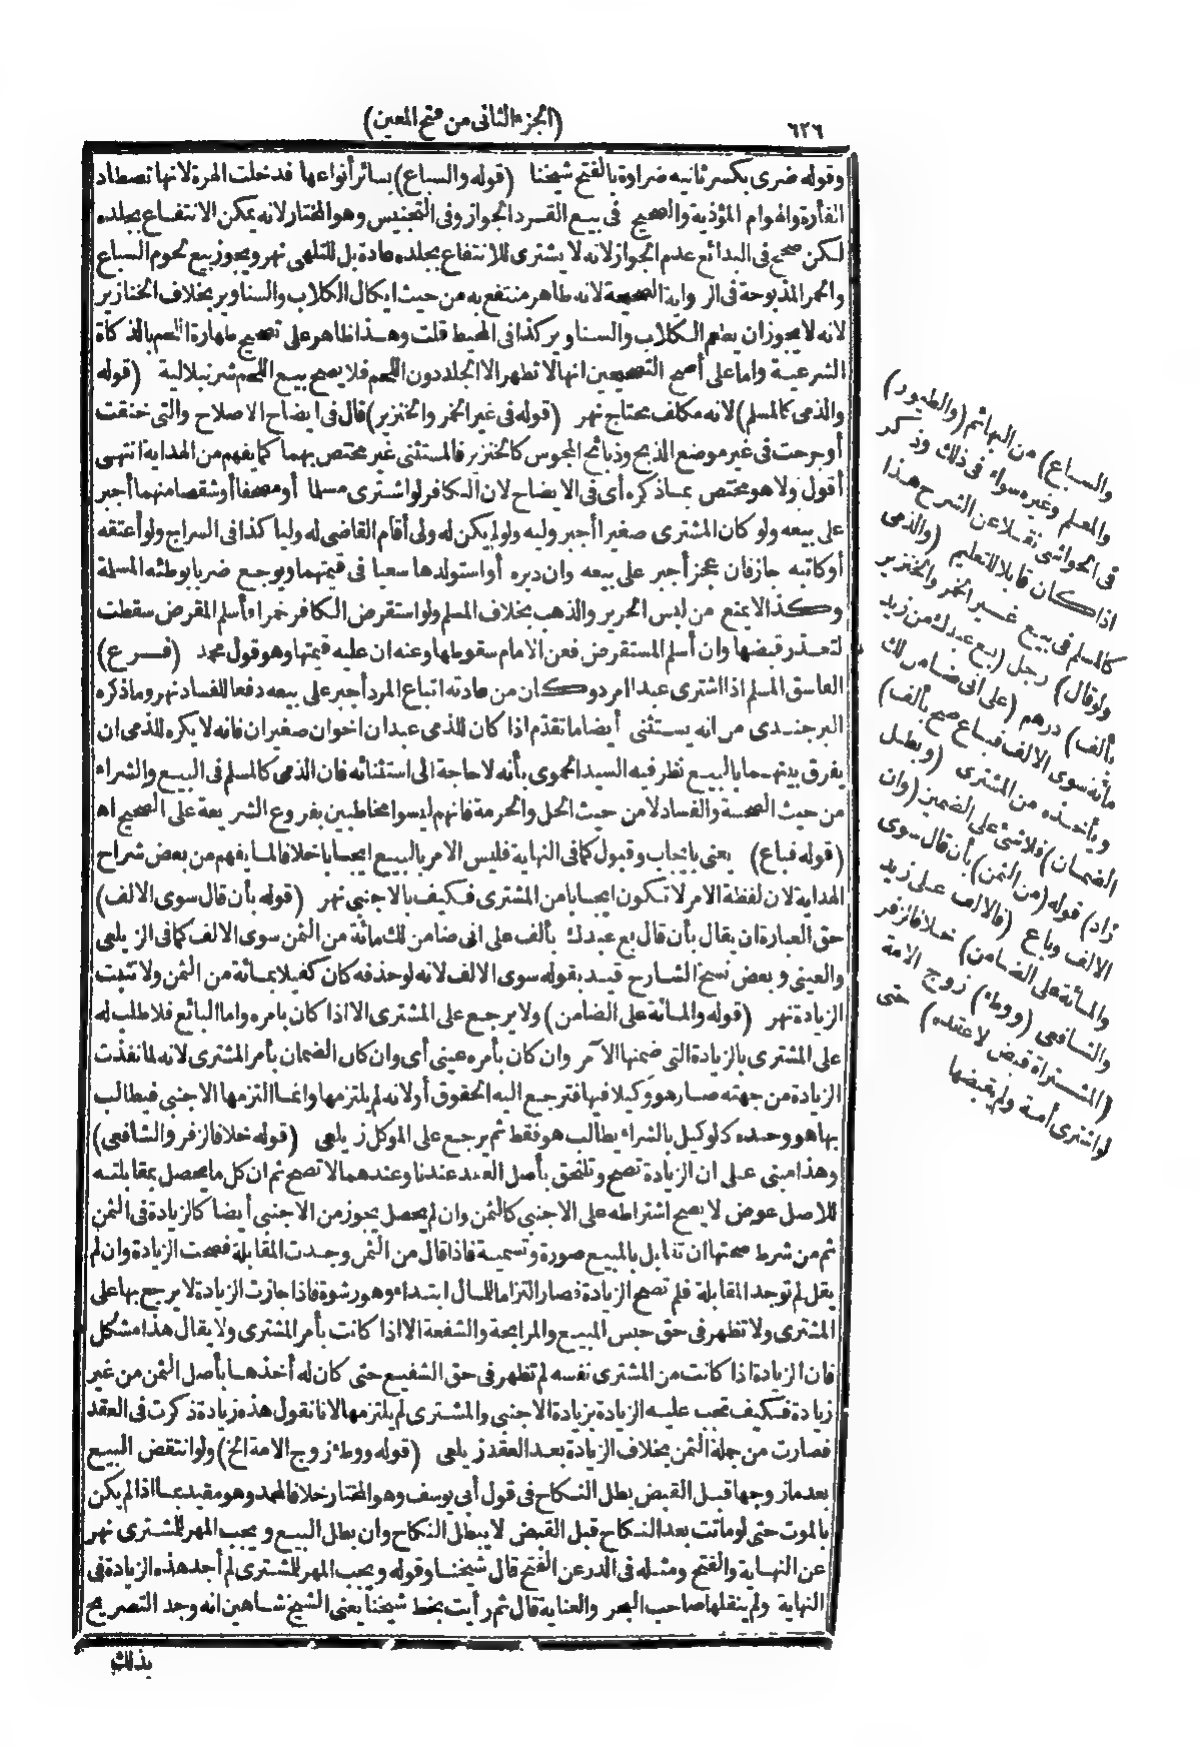 ٦٢٦
(الجزء الثانى من فتح المعين)
وقوله ضرى بكسر ثانيه ضراوة بالفتح شيخنا (قوله والسباع) بسائر أنواعها فدخلت الهرة لانها تصطاد
الفأرة والهوام المؤذية والصحيح فى بيع القرد الجواز وفى التجنيس وهو المختار لانه يمكن الانتفاع بجلده
لكن صحح فى البدائع عدم الجواز لانه لا يشترى للانتفاع بجلده عادة بل للتلهى نهر ويجوز بيع لحوم السباع
والحمر المذبوحة فى الرواية الصحيحة لانه طاهر منتفع به من حيث ايكال الكلاب والسنانير بخلاف الخنازير
لانه لا يجوز ان يطعم الكلاب والسنانير كذا فى المحيط قلت وهذا ظاهر على تصحيح طهارة اللحم بالذكاة
الشرعية واما على أصح التصحيحين انها لا تطهر الا الجلد دون اللحم فلا يصح بيع اللحم شرنبلالية (قوله
والذمى كالمسلم) لانه مكلف محتاج نهر (قوله فى غير الخمر والخنزير) قال فى ايضاح الاصلاح والتى خنقت
أو جرحت فى غير موضع الذبح وذبائح المجوس كالخنزير فالمستثنى غير مختص بهما كما يفهم من الهداية انتهى
أقول ولا هو مختص بما ذكره أى فى الايضاح لان الكافر لو اشترى مسلما أو مصحفا أو شقصا منهما أجبر
على بيعه ولو كان المشترى صغيرا أجبر وليه ولو لم يكن له ولى أقام القاضى له وليا كذا فى السراج ولو أعتقه
أو كاتبه جاز فان عجز أجبر على بيعه وان دبره أو استولدها سعيا فى قيمتهما ويوجع ضربا بوطئه المسلمة
وكذا لا يمنع من لبس الحرير والذهب بخلاف المسلم ولو استقرض الكافر خمرا وأسلم المقرض سقطت
لتعذر قبضها وان أسلم المستقرض فعن الامام سقوطها وعنه ان عليه قيمتها وهو قول محمد (فرع)
الفاسق المسلم اذا اشترى عبدا امرد وكان من عادته اتباع المرد أجبر على بيعه دفعا للفساد نهر وما ذكره
البرجندى من انه يستثنى أيضا ما تقدم اذا كان للذمى عبدان اخوان صغيران فانه لا يكره للذمى ان
يفرق بينهما بالبيع نظر فيه السيد الحموى بأنه لا حاجة الى استثنائه فان الذمى كالمسلم فى البيع والشراء
من حيث الصحة والفساد لا من حيث الحل والحرمة فانهم ليسوا مخاطبين بفروع الشريعة على الصحيح اه
(قوله فباع) يعنى بايجاب وقبول كما فى النهاية فليس الامر بالبيع ايجابا خلافا لما يفهم من بعض شراح
الهداية لان لفظة الامر لا تكون ايجابا من المشترى فكيف بالاجنبى نهر (قوله بأن قال سوى الالف)
حق العبارة ان يقال بأن قال بع عبدك بألف على انى ضامن لك مائة من الثمن سوى الالف كما فى الزيلعى
والعينى وبعض نسخ الشارح قيد بقوله سوى الالف لانه لو حذفه كان كفيلا بمائة من الثمن ولا تثبت
الزيادة نهر (قوله والمائة على الضامن) ولا يرجع على المشترى الا اذا كان بامره واما البائع فلا طلب له
على المشترى بالزيادة التى ضمنها الآمر وان كان بأمره عينى أى وان كان الضمان بأمر المشترى لانه لما نفذت
الزيادة من جهته صار هو وكيلا فيها فترجع اليه الحقوق أو لانه لم يلتزمها وانما التزمها الاجنبى فيطالب
بها هو وحده كلوكيل بالشراء يطالب هو فقط ثم يرجع على الموكل زيلعى (قوله خلافا لزفر والشافعى)
وهذا مبنى على ان الزيادة تصح وتلتحق بأصل العقد عندنا وعندهما لا تصح ثم ان كل ما يحصل بمقابلته
للاصل عوض لا يصح اشتراطه على الاجنبى كالثمن وان لم يحصل يجوز من الاجنبى أيضا كالزيادة فى الثمن
ثم من شرط صحتها ان تقابل بالمبيع صورة وتسمية فاذا قال من الثمن وجدت المقابلة فصحت الزيادة وان لم
يقل لم توجد المقابلة فلم تصح الزيادة فصار التزاما للمال ابتداء وهو رشوة فاذا جازت الزيادة لا يرجع بها على
المشترى ولا تظهر فى حق حبس المبيع والمرابحة والشفعة الا اذا كانت بأمر المشترى ولا يقال هذا مشكل
فان الزيادة اذا كانت من المشترى نفسه لم تظهر فى حق الشفيع حتى كان له أخذها بأصل الثمن من غير
زيادة فكيف تجب عليه الزيادة بزيادة الاجنبى والمشترى لم يلتزمها لانا نقول هذه زيادة ذكرت فى العقد
فصارت من جملة الثمن بخلاف الزيادة بعد العقد زيلعى (قوله ووطء زوج الامة الخ) ولو انتقض البيع
بعد ما زوجها قبل القبض بطل النكاح فى قول أبى يوسف وهو المختار خلافا لمحمد وهو مقيد بما اذا لم يكن
بالموت حتى لو ماتت بعد النكاح قبل القبض لا يبطل النكاح وان بطل البيع ويجب المهر للمشترى نهر
عن النهاية والفتح ومثله فى الدر عن الفتح قال شيخنا وقوله ويجب المهر للمشترى لم أجد هذه الزيادة فى
النهاية ولم ينقلها صاحب البحر والعناية قال ثم رأيت بخط شيخنا يعنى الشيخ شاهين انه وجد التصريح
بذلك
والسباع) من البهائم (والطيور)
والمعلم وغيره سواء فى ذلك وذكر
فى الحواشى نقلا عن الشرح هذا
اذا كان قابلا للتعليم (والذمى
كالمسلم فى بيع غير الخمر والخنزير
ولو قال) رجل (بع عبدك من زيد
بألف) درهم (على انى ضامن لك
مائة سوى الالف فباع صح بألف)
ويأخذه من المشترى (وبطل
الضمان) فلا شئ على الضمين (وان
زاد) قوله (من الثمن) بأن قال سوى
الالف وباع (فالالف على زيد
والمائة على الضامن) خلافا لزفر
والشافعى (ووطء) زوج الامة
(المشتراة قبض لا عقده) حتى
لو اشترى أمة ولم يقبضها